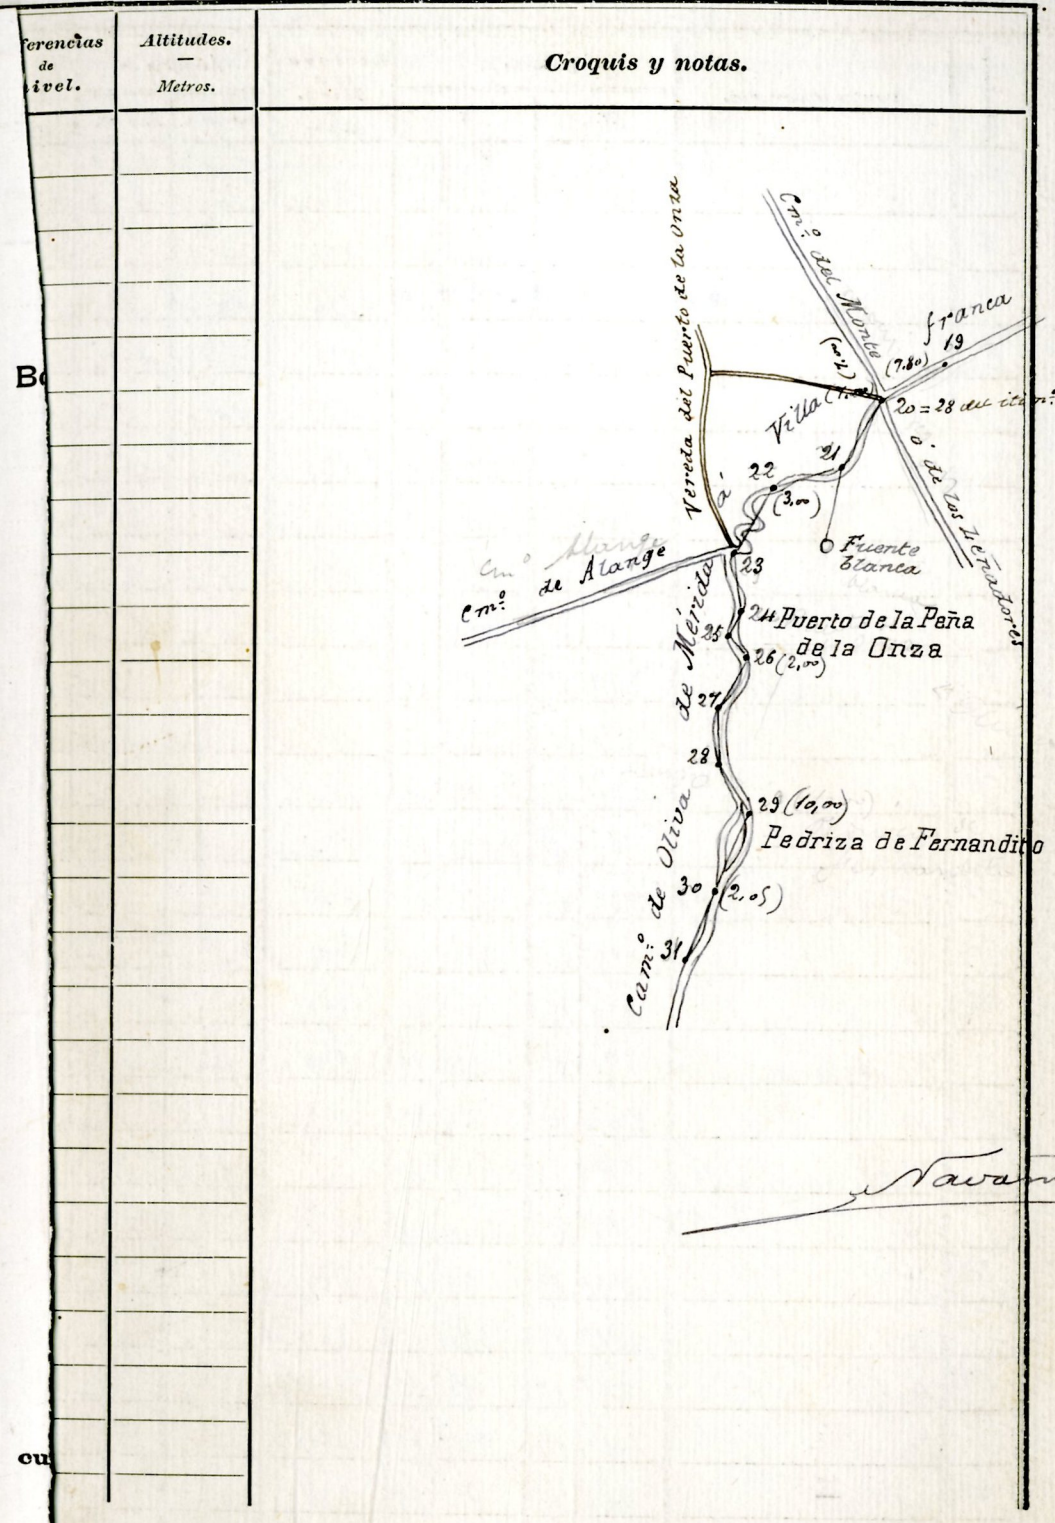 ferencias
de
ivel.
Altitudes.
—
Metros.
Croquis y notas.
Vereda del Puerto de la Onza
Cm.º del Monte
ó de los Leñadores
franca
19
(7,80)
20 = 28 del itin.º
Villa
21
22
(3,00)
á
Fuente
blanca
23
Cmº Alange
Cm.º de Alange
24 Puerto de la Peña
de la Onza
25
26 (2,00)
27
28
29 (10,00)
Pedriza de Fernandito
30 (2,05)
31
Cam.º de Oliva de Mérida
Bo
cu